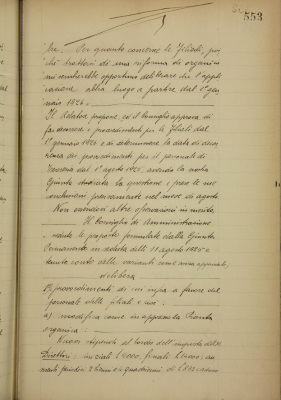 553
bra. Per quanto concerne le Filiali, poi
chè trattasi di una riforma di organici
mi sembrerebbe opportuno deliberare che l'appli
cazione abbia luogo a partire dal 1° gen
naio 1926.
Il Relatore propone, ed il Consiglio approva, di
far decorrere i provvedimenti per le Filiali dal
1° gennaio 1926 e di determinare la data di decor
renza dei provvedimenti per il personale di
dal 1° agosto 1925, avendo la nostra
Giunta studiata la questione e prese le sue
conclusioni precisamente nel mese di agosto.
Non essendovi altre osservazioni in merito,
Il Consiglio di Amministrazione
vedute le proposte formulate dalla Giunta
Permanente in seduta delli 18 agosto 1925 e
tenuto conto delle varianti come sopra approvate,
delibera
provvedimenti di cui infra a favore del
personale delle filiali e cioè:
a) modifica come in appresso la Pianta
organica:
Nuovi stipendi al lordo dell'imposta di R.M.
Direttori: iniziali L. finali L. au
menti periodici 2 bienni e 4 quadrienni di L. cadauno